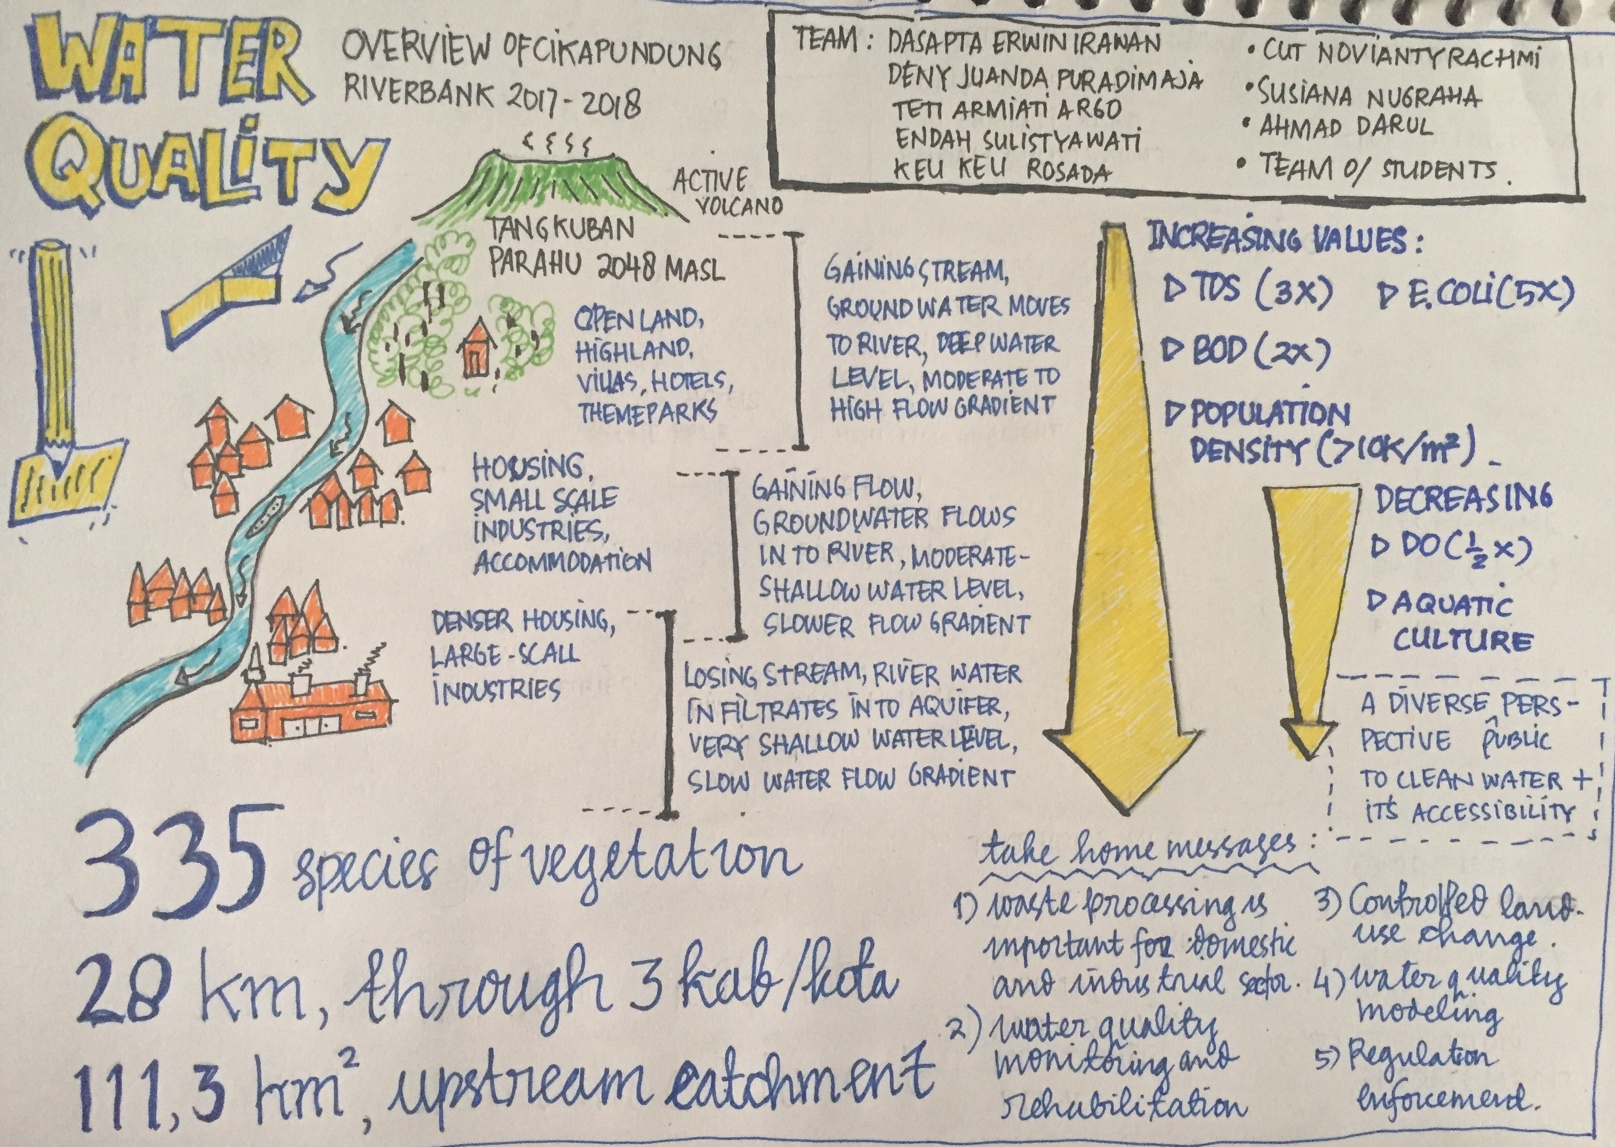 WATER
QUALITY
OVERVIEW OF CIKAPUNDUNG
RIVERBANK 2017-2018
TEAM : DASAPTA ERWIN IRAWAN
DENY JUANDA PURADIMAJA
TETI ARMIATI ARGO
ENDAH SULISTYAWATI
KEU KEU ROSADA
• CUT NOVIANTY RACHMI
• SUSIANA NUGRAHA
• AHMAD DARUL
• TEAM O/ STUDENTS.
ACTIVE
VOLCANO
TANGKUBAN
PARAHU 2048 MASL
OPEN LAND,
HIGHLAND,
VILLAS, HOTELS,
THEMEPARKS
GAINING STREAM,
GROUNDWATER MOVES
TO RIVER, DEEP WATER
LEVEL, MODERATE TO
HIGH FLOW GRADIENT
HOUSING,
SMALL SCALE
INDUSTRIES,
ACCOMMODATION
GAINING FLOW,
GROUNDWATER FLOWS
IN TO RIVER, MODERATE-
SHALLOW WATER LEVEL,
SLOWER FLOW GRADIENT
DENSER HOUSING,
LARGE-SCALL
INDUSTRIES
LOSING STREAM, RIVER WATER
INFILTRATES INTO AQUIFER,
VERY SHALLOW WATER LEVEL,
SLOW WATER FLOW GRADIENT
INCREASING VALUES :
▷ TDS (3X) ▷ E.COLI (5X)
▷ BOD (2X)
▷ POPULATION
DENSITY (>10K/m²)
DECREASING
▷ DO (½ X)
▷ AQUATIC
CULTURE
A DIVERSE PERS-
PECTIVE ^ PUBLIC
TO CLEAN WATER +
IT'S ACCESSIBILITY
335 species of vegetation
28 km, through 3 kab/kota
111,3 km², upstream catchment
take home messages :
1) waste processing is
important for domestic
and industrial sector.
2) water quality
monitoring and
rehabilitation
3) Controlled land-
use change.
4) water quality
modeling
5) Regulation
enforcement.